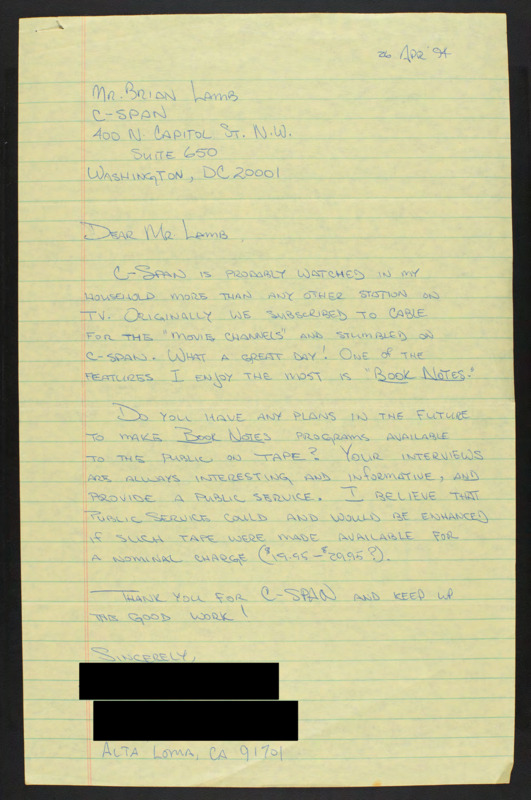 26 Apr '94
Mr. Brian Lamb
C-SPAN
400 N. Capitol St. N.W.
Suite 650
Washington, DC 20001
Dear Mr Lamb
C-Span is probobly watched in my
household more than any other station on
TV. Originally we subscribed to cable
for the "movie channels" and stumbled on
C-span. What a great day! One of the
features I enjoy the most is "Book Notes."
Do you have any plans in the future
to make Book Notes programs available
to the public on tape? Your interviews
are always interesting and informative, and
provide a public service. I believe that
public service could and would be enhanced
if such tape were made available for
a nominal charge ($19.95-$29.95?).
Thank you for C-SPAN and keep up
the good work!
Sincerely,
Alta Loma, CA 91701